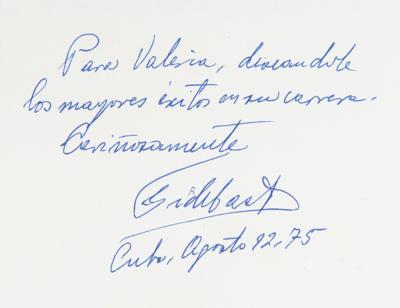 Para Valeria, deseandole
los mayores éxitos en su carrera.
Cariñosamente
Cuba, Agosto 12, 75